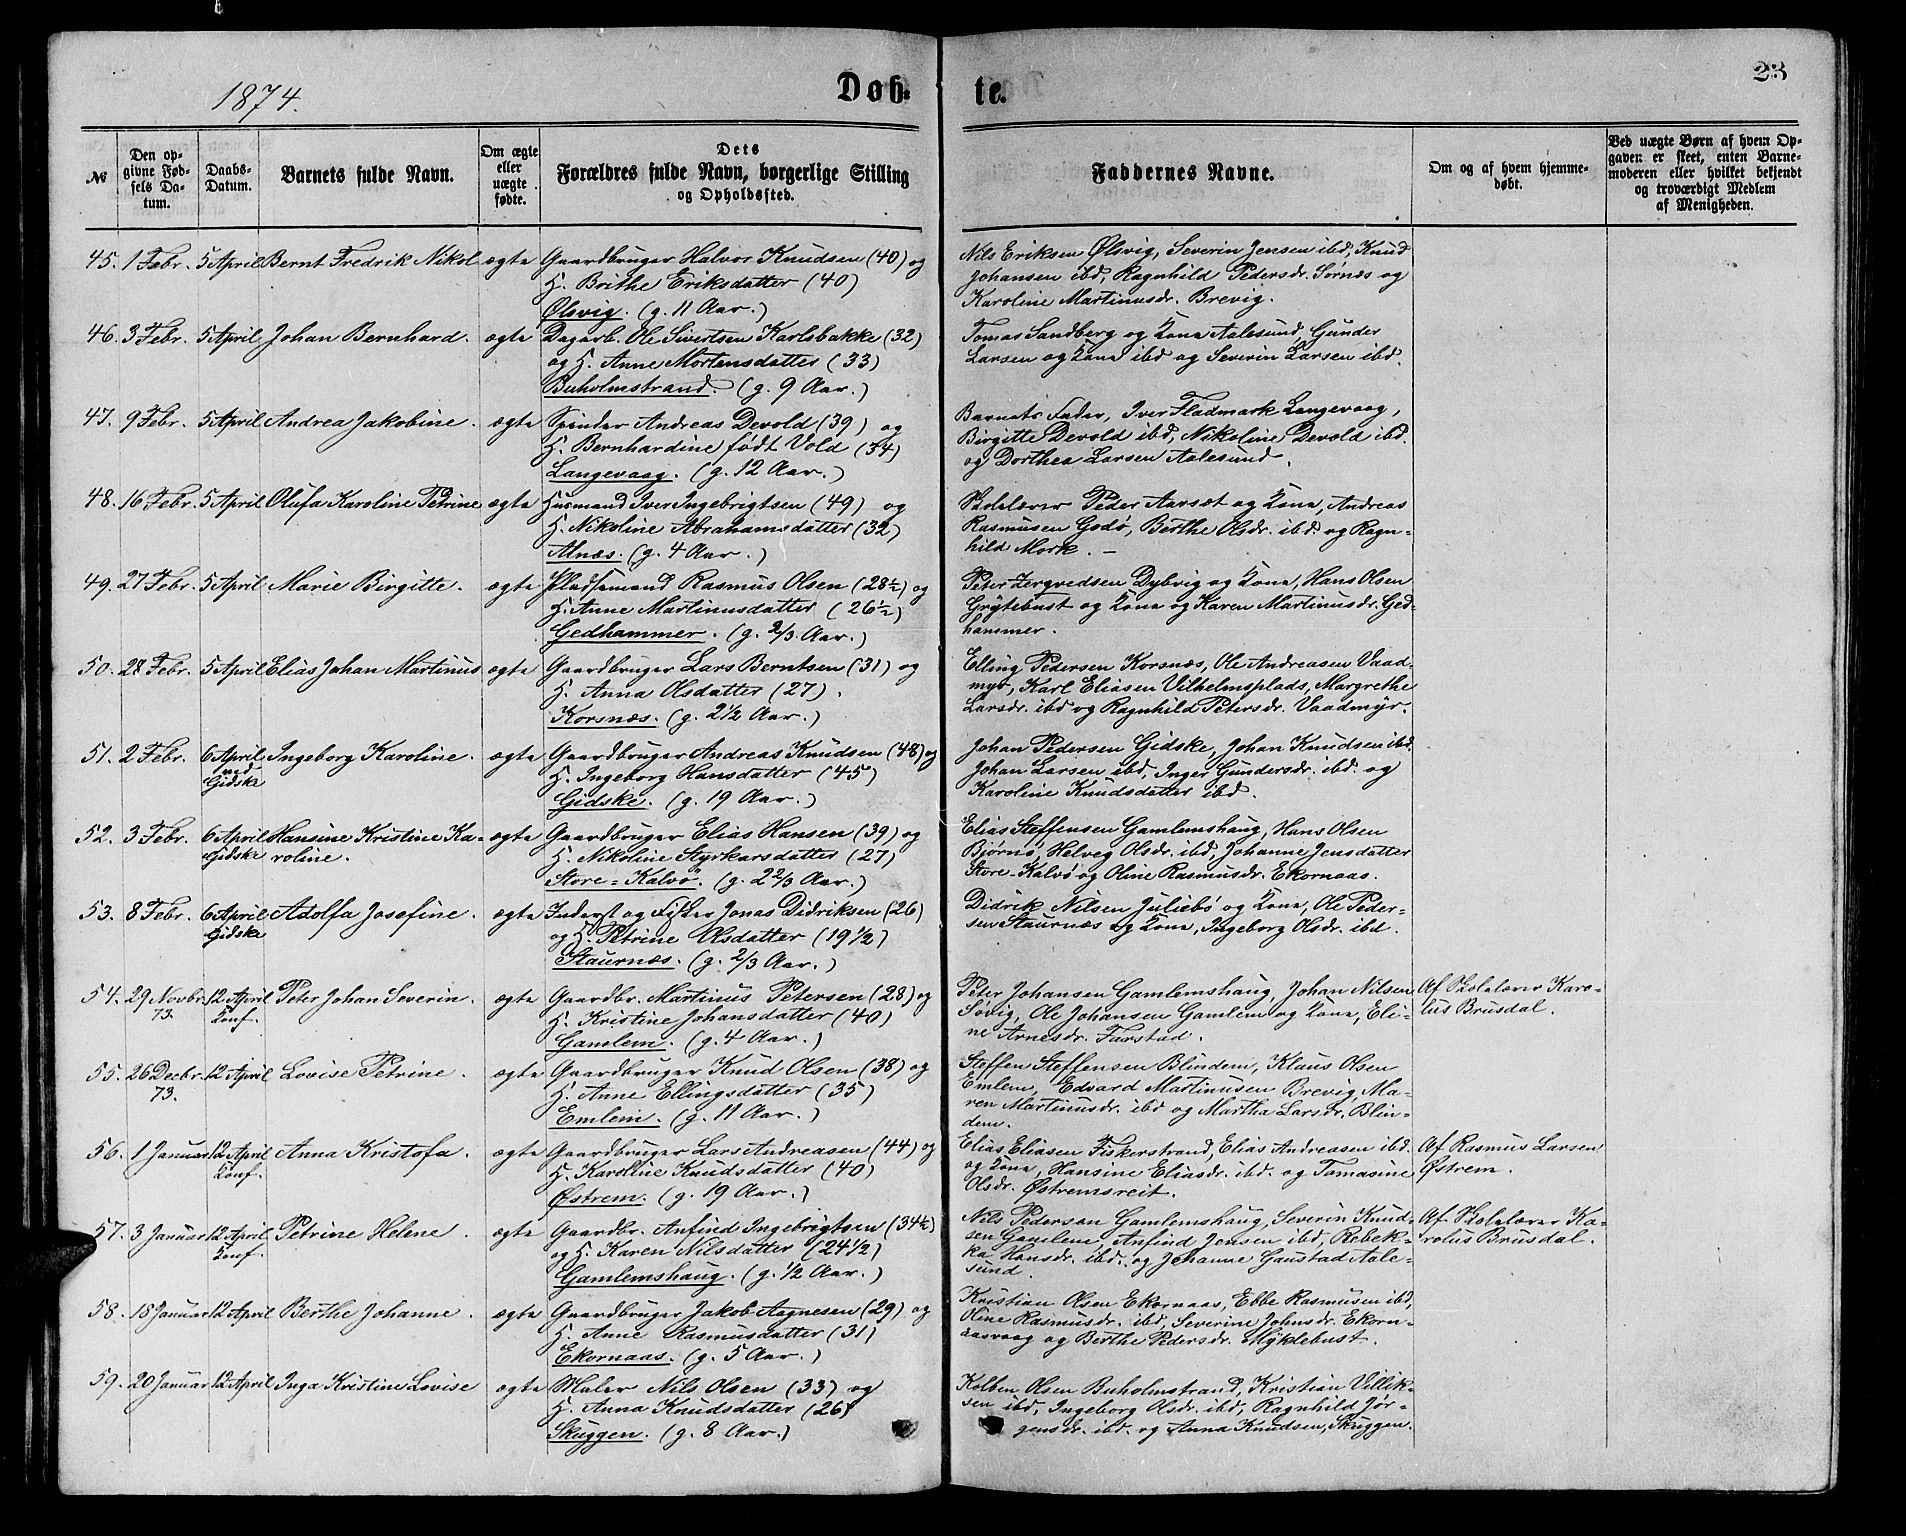 1874.
Døb-
te.
23
№
Den op-
givne Fød-
sels Da-
tum.
Daabs-
Datum.
Barnets fulde Navn.
Om ægte
eller
uægte
fødte.
Dets
Forældres fulde Navn, borgerlige Stilling
og Opholdssted.
Faddernes Navne.
Om og af hvem hjemme-
døbt.
Ved uægte Børn af hvem Op-
gaven er skeet, enten Barne-
moderen eller hvilket bekjendt
og troværdigt Medlem
af Menigheden.
45. 1 Febr. 5 April Bernt Fredrik Nikol ægte Gaardbruger Halvor Knudsen (40) og
H. Brithe Eriksdatter (40)
Ølsvig. (g. 11 Aar.)
Nils Eriksen Ølsvig, Severin Jensen ibd, Knud
Johansen ibd, Ragnhild Pedersdr. Sørnæs og
Karoline Martinusdr. Brevig.
46. 3 Febr. 5 April Johan Bernhard. ægte Dagarb. Ole Sivertsen Karlsbakke (32)
og H. Anne Mortensdatter (33)
Buholmstrand. (g. 9 Aar.)
Tomas Sandberg og Kone Aalesund, Gunder
Larsen og Kone ibd og Severin Larsen ibd.
47. 9 Febr. 5 April Andrea Jakobine. ægte Spinder Andreas Devold (39) og
H. Bernhardine født Vold (34)
Langevaag. (g. 12 Aar.)
Barnets Fader, Iver Fladmark Langevaag,
Birgitte Devold ibd, Nikoline Devold ibd.
og Dorthea Larsen Aalesund.
48. 16 Febr. 5 April Olufa Karoline Petrine ægte Husmand Iver Ingebrigtsen (49) og
H. Nikoline Abrahamsdatter (32)
Alnæs. (g. 4 Aar.)
Skolelærer Peder Aarset og Kone, Andreas
Rasmusen Godø, Berthe Olsdr. ibd. og Ragn-
hild Mork. -
49. 27 Febr. 5 April Marie Birgitte. ægte Pladsemand Rasmus Olsen (28½) og
H. Anne Martinusdatter (26½)
Gedhammer. (g. 2/3 Aar.)
Peter Dybvig og Kone, Hans Olsen
Grytebust og Kone og Karen Martinusdr. Ged-
hammer.
50. 28 Febr. 5 April Elias Johan Martinus ægte Gaardbruger Lars Berntsen (31) og
H. Anna Olsdatter (27).
Korsnæs. (g. 2½ Aar.)
Elling Pedersen Korsnæs, Ole Andreasen Vaad-
myr, Karl Eliasen Vilhelmsplads, Margrethe
Larsdr. ibd og Ragnhild Petersdr. Vaadmyr.
51. 2 Febr. 6 April Ingeborg Karoline. ægte Gaardbruger Andreas Knudsen (48) og
ved
Gidske
H. Ingeborg Hansdatter (45)
Gidske. (g. 19 Aar.)
Johan Pedersen Gidske, Johan Knudsen ibd.
Johan Larsen ibd, Inger Gundersdr. ibd. og
Karoline Knudsdatter ibd.
52. 3 Febr. 6 April Hansine Kristine Ka- ægte Gaardbruger Elias Hansen (39) og
Gidske roline. H. Nikoline Styrkarsdatter (27)
Store=Kalvø. (g. 2 2/3 Aar.)
Elias Steffensen Gamlemshaug, Hans Olsen
Bjørnø, Helveg Olsdr. ibd, Johanne Jensdatter
Store-Kalvø og Oline Rasmusdr. Ekornaas.
53. 8 Febr. 6 April Adolfa Josefine. ægte Inderst og Fisker Jonas Didriksen (26)
Gidske og H. Petrine Olsdatter (19½)
Staurnæs. (g. 2/3 Aar.)
Didrik Nilsen Juliebø og Kone, Ole Peder-
sen Staurnæs og Kone, Ingeborg Olsdr. ibd.
54. 29 Novbr. 12 April Peter Johan Severin. ægte Gaardbr. Martinus Petersen (28) og
73. Konf. H. Kristine Johansdatter (40)
Gamlem. (g. 4 Aar.)
Peter Johansen Gamlemshaug, Johan Nilsen
Søvig, Ole Johansen Gamlem og Kone, Eli-
ne Arnesdr. Farstad.
Af Skolelærer Karo-
lus Brusdal.
55. 26 Decbr. 12 April Lovise Petrine. ægte Gaardbruger Knud Olsen (38) og
73. H. Anne Ellingsdatter (35)
Emlem. (g. 11 Aar.)
Steffen Steffensen Blindem, Klaus Olsen
Emlem, Edvard Martinusen Brevig, Ma-
ren Martinusdr. ibd og Martha Larsdr. Blin-
dem.
56. 1 Januar 12 April Anna Kristofa. ægte Gaardbruger Lars Andreasen (44) og
Konf. H. Karoline Knudsdatter (40)
Østrem. (g. 19 Aar.)
Elias Eliasen Fiskerstrand, Elias Andreasen ibd.
og Kone, Hansine Eliasdr. ibd. og Tomasine
Olsdr. Østremsreit.
Af Rasmus Larsen
Østrem.
57. 3 Januar 12 April Petrine Helene. ægte Gaardbr. Anfind Ingebrigtsen (34½)
Konf. og H. Karen Nilsdatter (24½)
Gamlemshaug. (g. ½ Aar.)
Nils Pedersen Gamlemshaug, Severin Knud-
sen Gamlem, Anfind Jensen ibd, Rebek-
ka Hansdr. ibd. og Johanne Gaustad Aale-
sund.
Af Skolelærer Ka-
rolus Brusdal.
58. 18 Januar 12 April Berthe Johanne. ægte Gaardbruger Jakob Aagnesen (29) og
H. Anne Rasmusdatter (31)
Ekornaas. (g. 5 Aar.)
Kristian Olsen Ekornaas, Ebbe Rasmusen ibd,
Oline Rasmusdr. ibd, Severine Johnsdr. Ekorn-
aasvaag og Berthe Pedersdr. Myklebust.
59. 20 Januar 12 April Inga Kristine Lovise ægte Maler Nils Olsen (33) og
H. Anna Knudsdatter (26)
Skuggen. (g. 8 Aar.)
Kolben Olsen Buholmstrand, Kristian Villik-
sen ibd, Ingeborg Olsdr. ibd, Ragnhild Jør-
gensdr. ibd. og Anna Knudsen, Skuggen.